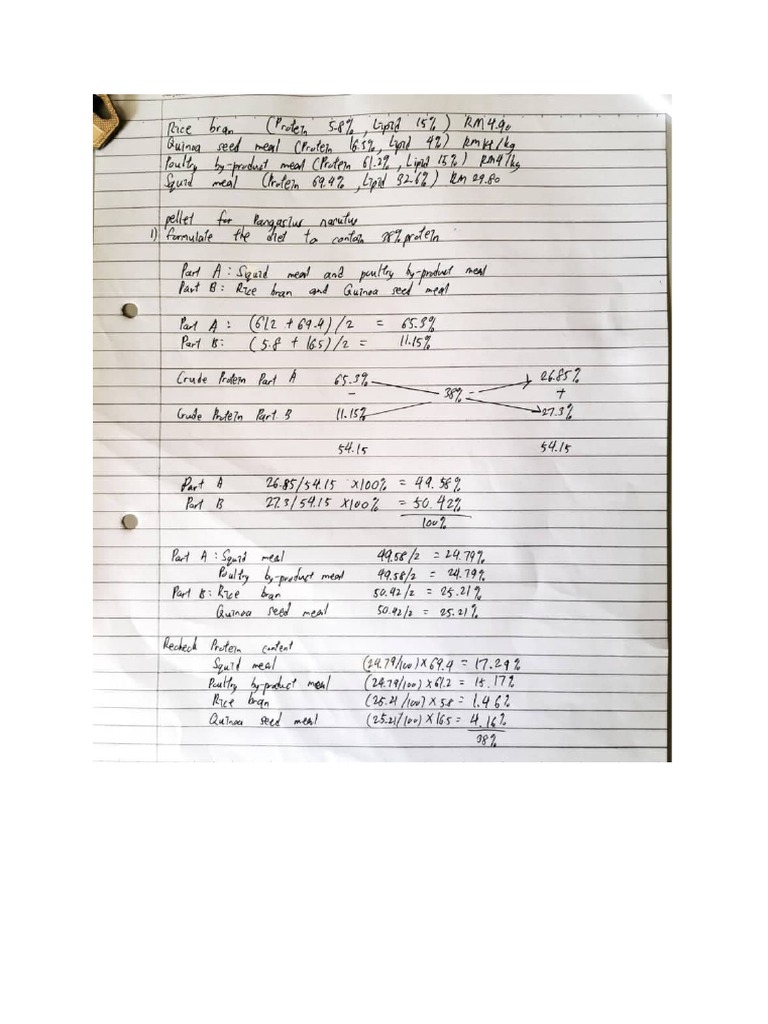 Rice bran (Protein 5.8%, Lipid 15%) RM 4.90
Quinoa seed meal (Protein 16.5%, Lipid 4%) RM /kg
Poultry by-product meal (Protein 61.2%, Lipid 15%) RM4/kg
Squid meal (Protein 69.4%, Lipid 32.6%) RM 29.80
pellet for Pangasius nasutus
1) formulate the diet to contain 38% protein
Part A: Squid meal and poultry by-product meal
Part B: Rice bran and Quinoa seed meal
Part A: (61.2 + 69.4)/2 = 65.3%
Part B: (5.8 + 16.5)/2 = 11.15%
Crude Protein Part A 65.3% 26.85%
- 38% - +
Crude Protein Part B 11.15% 27.3%
54.15 54.15
Part A 26.85/54.15 x100% = 49.58%
Part B 27.3/54.15 x100% = 50.42%
100%
Part A: Squid meal 49.58/2 = 24.79%
Poultry by-product meal 49.58/2 = 24.79%
Part B: Rice bran 50.42/2 = 25.21%
Quinoa seed meal 50.42/2 = 25.21%
Recheck Protein content
Squid meal (24.79/100) x 69.4 = 17.29%
Poultry by-product meal (24.79/100) x 61.2 = 15.17%
Rice bran (25.21/100) x 5.8 = 1.46%
Quinoa seed meal (25.21/100) x 16.5 = 4.16%
38%